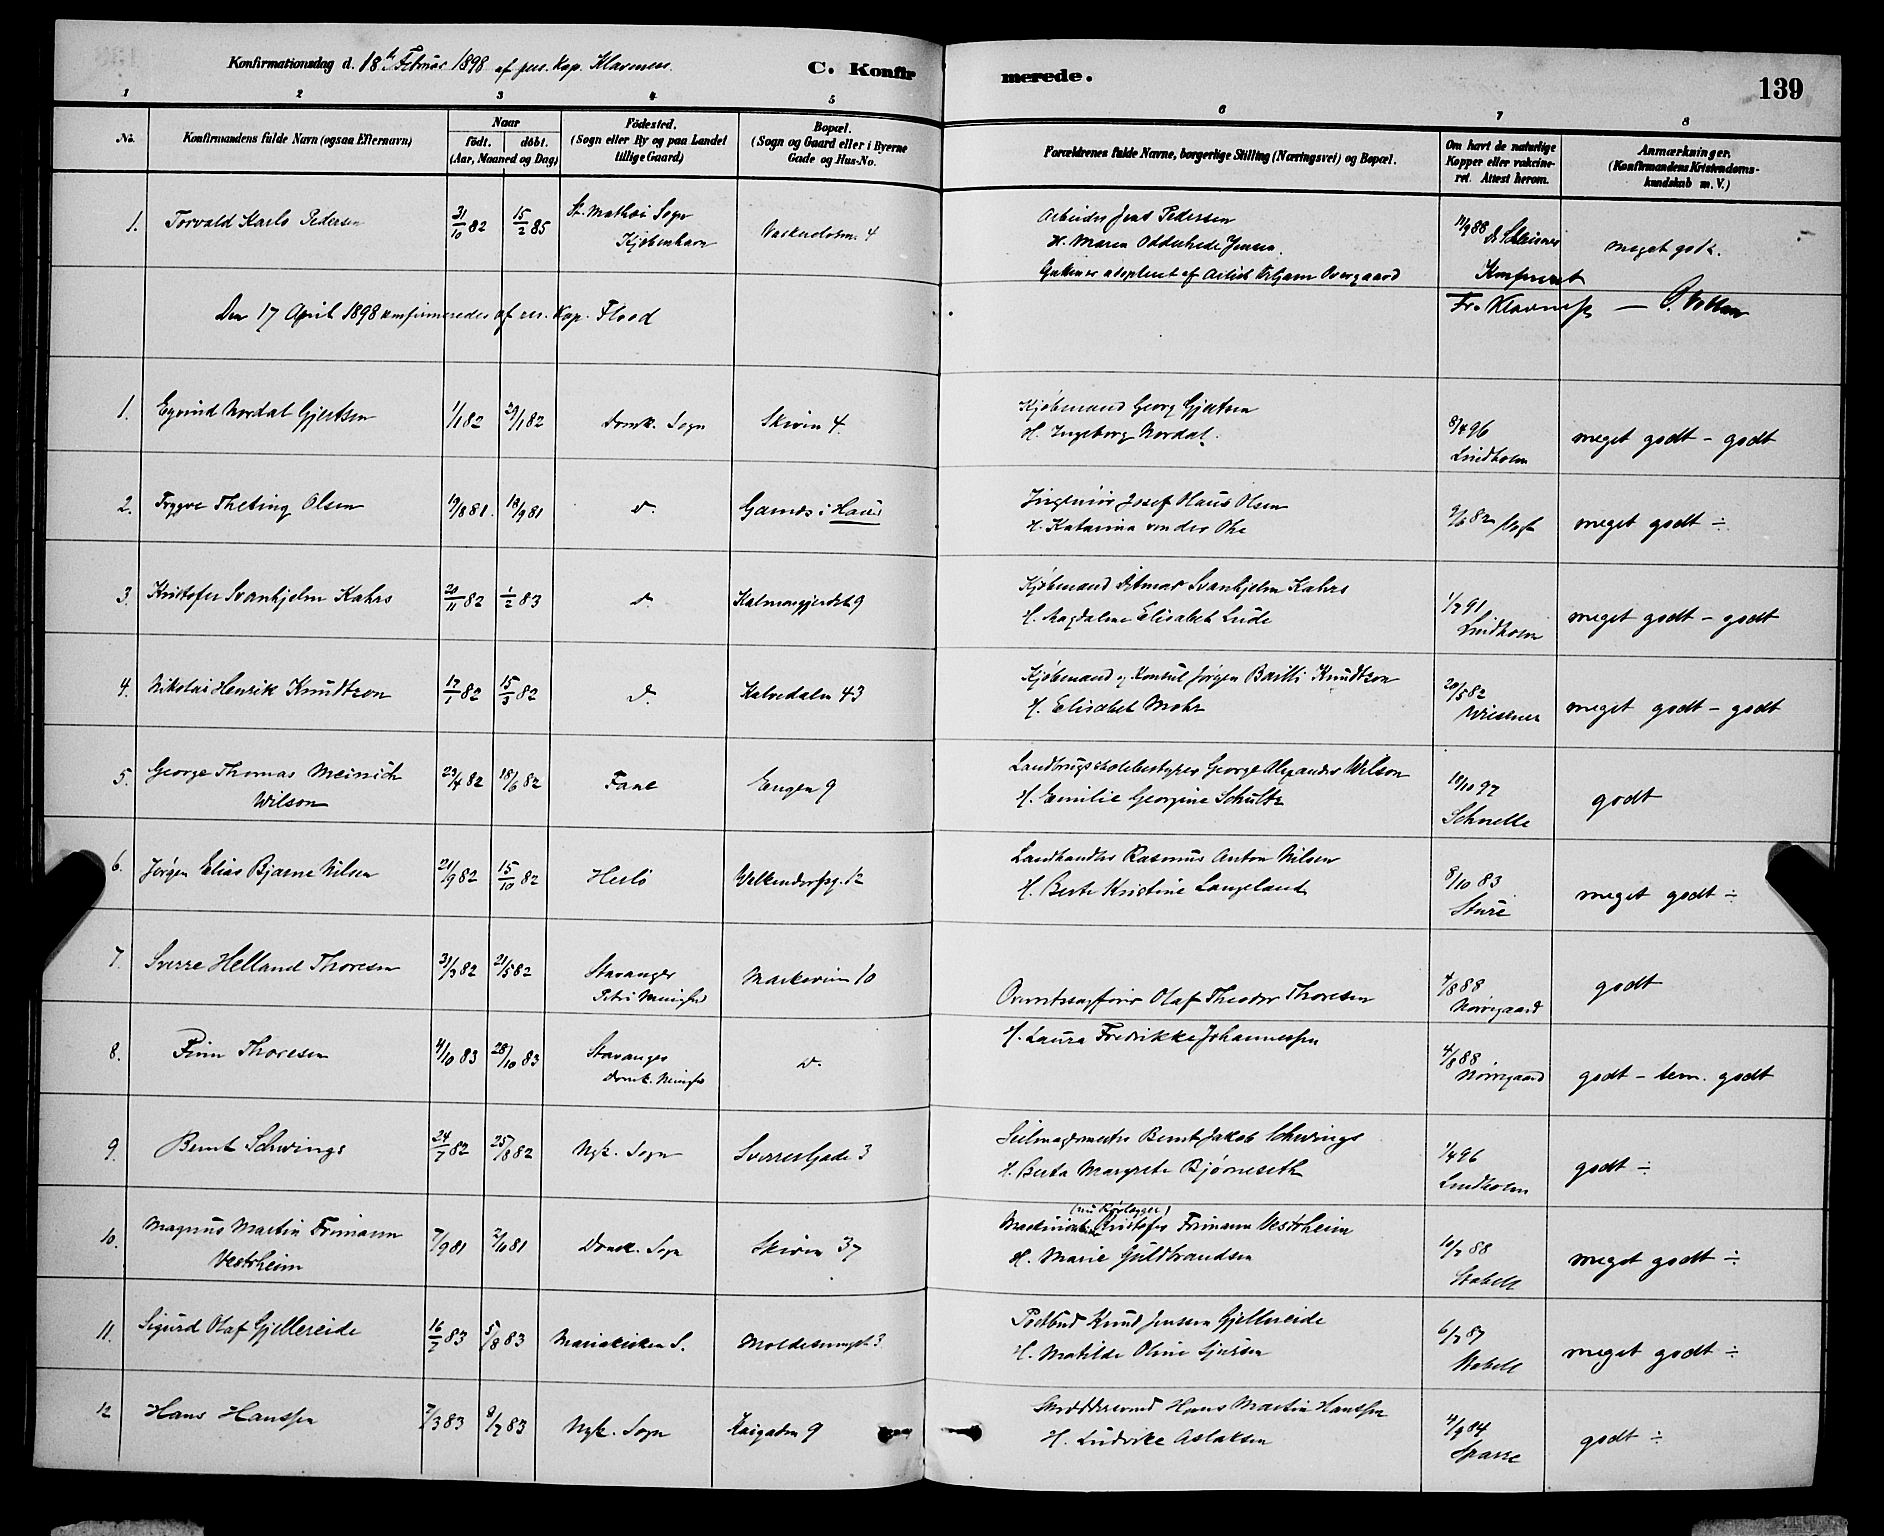 Konfirmationsdag d. 18de Februar 1898 af res. Kap. Klavness.
C. Konfirmerede.
139
1 2 3 4 5 6 7 8
No.
Konfirmandens fulde Navn (ogsaa Efternavn)
Naar
født. døbt.
(Aar, Maaned og Dag)
Fødested.
(Sogn eller By og paa Landet
tillige Gaard)
Bopæl.
(Sogn og Gaard eller i Byerne
Gade og Hus-No.
Forældrenes fulde Navne, borgerlige Stilling (Næringsvei) og Bopæl.
Om havt de naturlige
Kopper eller vakcine-
ret. Attest herom.
Anmærkninger.
(Konfirmandens Kristendoms-
kundskab m. V.)
1. Torvald Karlo Pedersen 31/10 82 15/2 85 St. Mathæi Sogn
Kjøbenhavn
4
Arbeider Jens Pedersen
H. Maren Jensen
Gutten er adopteret af Overgaard
/9 88
meget godt.
Konfirmeret
Fr. Klavness —
Den 17 April 1898 konfirmeredes af res. Kap. Flood
1. Eyvind Nordal Gjertsen 1/1 82 29/1 82 Domk. Sogn Skiven 4.
Kjøbmand Georg Gjertsen
H. Ingeborg Nordal.
8/4 96
Lindholm
meget godt - godt
2. Trygve Theting Olsen 19/8 81. 18/9 81 do. Garnes i Haus
Ingeniør Josef Olaus Olsen
H. Katarina von der Ohe
9/6 82
meget godt ÷
3. Kristofer Svanhjelm Kahrs 20/11 82 1/2 83 do. Kalmargjerdet 9
Kjøbmand Ditmar Svanhjelm Kahrs
H. Magdalene Elisabet Lude
1/7 91
Lindholm
meget godt - godt
4. Nikolai Henrik Knudtzon 17/1 82 15/3 82 do. Kalvedalen 43
Kjøbmand og Konsul Jørgen Knudtzon
H. Elisabet Mohr
20/5 82
Wiesener
meget godt - godt
5. George Thomas Meinich
Wilson
29/4 82 18/6 82 Fane Engen 9
Landbrugsskolebestyrer George Alexander Wilson
H. Emilie Georgine Schultz
18/10 97
Schnelle
godt
6. Jørgen Elias Bjarne Nilsen 21/9 82 15/10 82 Herlø Welkendorfsg. 12
Landhandler Rasmus Anton Nilsen
H. Berte Kristine Langeland
8/10 83
Sture
meget godt ÷
7. Sverre Helland Thoresen 31/3 82 21/5 82 Stavanger
Petri Menighed
Markeveien 10
Overretssagfører Olaf Theodor Thoresen
4/8 88
Norregaard
godt
8. Finn Thoresen 4/10 83 28/10 83 Stavanger
Domk. Menighed
do.
H. Laura Fredrikke Johannessen
4/8 88
Norregaard
godt - tem. godt
9. Bernt Schwings 24/7 82 25/8 82 Nyk. Sogn Sverresgade 3
Seilmagermester Bernt Jakob Schwings
H. Berta Margrete Bjørneseth
1/4 96
Lindholm
godt ÷
10. Magnus Martin Frimann
Vestrheim
7/9 81 2/10 81 Domk. Sogn Skiven 37
(nu Rørlægger)
Maskinist Kristofer Frimann Vestrheim
H. Marie Guldbrandsen
10/7 88
Stabell
meget godt ÷
11. Sigurd Olaf Gjellereide 16/7 83 5/8 83 Mariakirken S. 3
Postbud Knud Jensen Gjellereide
H. Matilde Oline Sjursen
6/7 87
Stabell
meget godt ÷
12 Hans Hanssen 7/3 83 8/7 83 Nyk. Sogn Kaigaden 9
Skræddersvend Hans Martin Hanssen
H. Ludvikke Aslaksen
4/9 84
Sparre
godt ÷